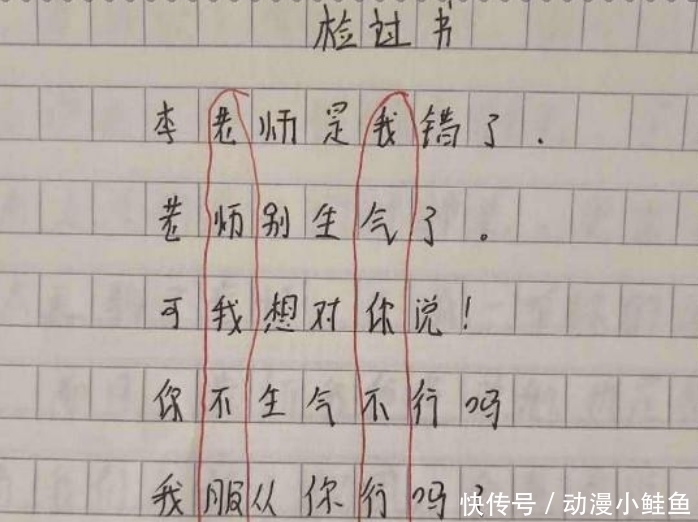 检过书
李老师是我错了.
老师别生气了。
可我想对你说!
你不生气不行吗
我服从你行吗?
快传号/动漫小鲑鱼